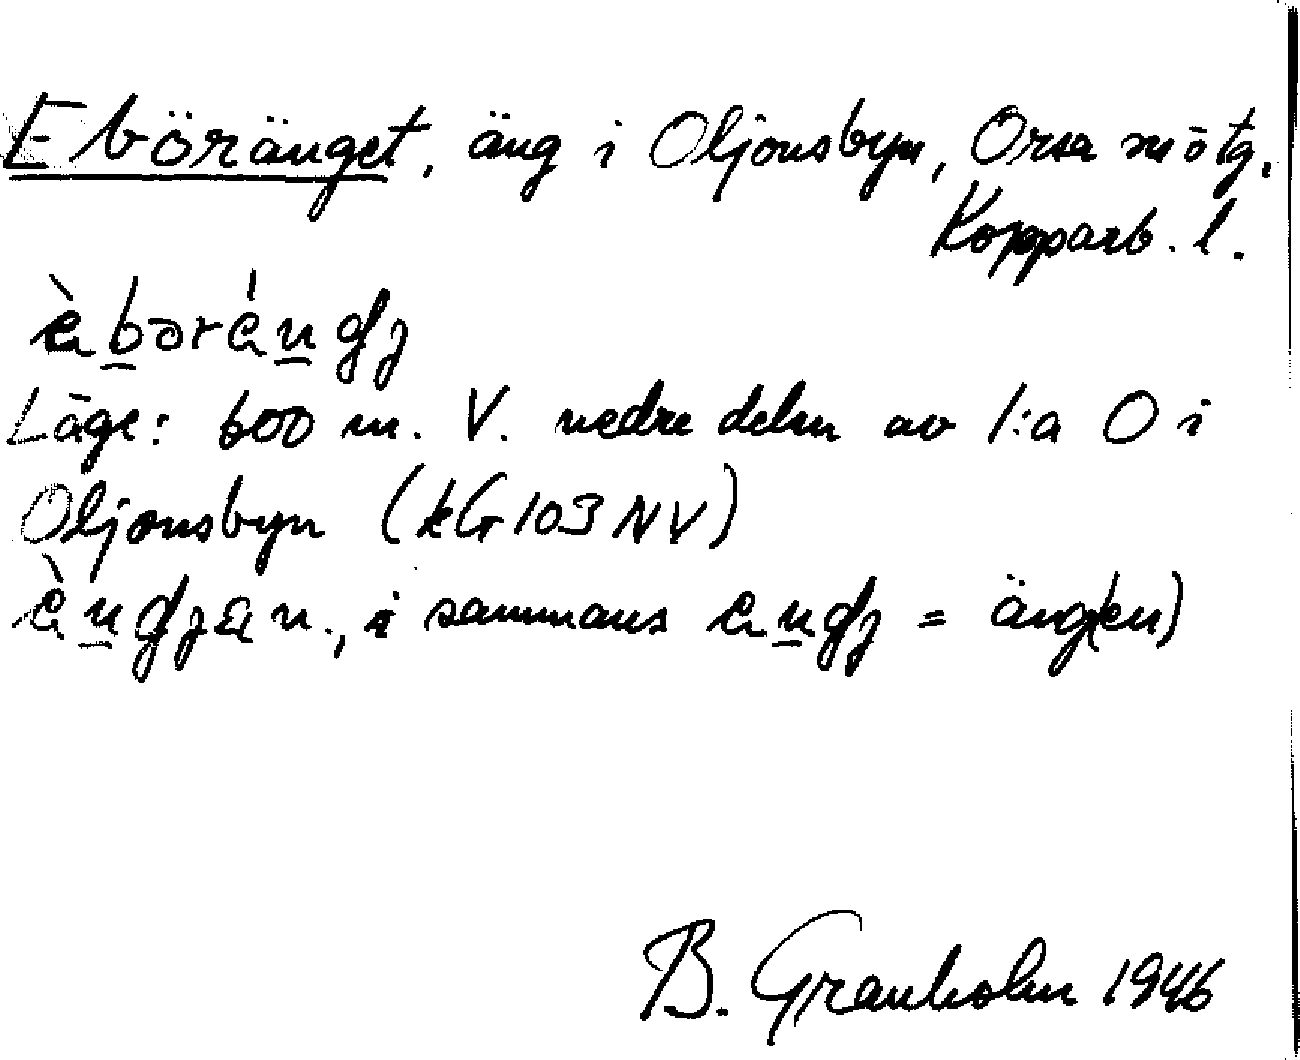 Eböränget, äng i Oljonsbyn, Orsa sn ö tg.
Kopparb. l.
Läge: 600 m. V. nedre delen av 1:a O i
Oljonsbyn (kG 103 NV)
i sammans = äng(en)
B. Granholm 1946